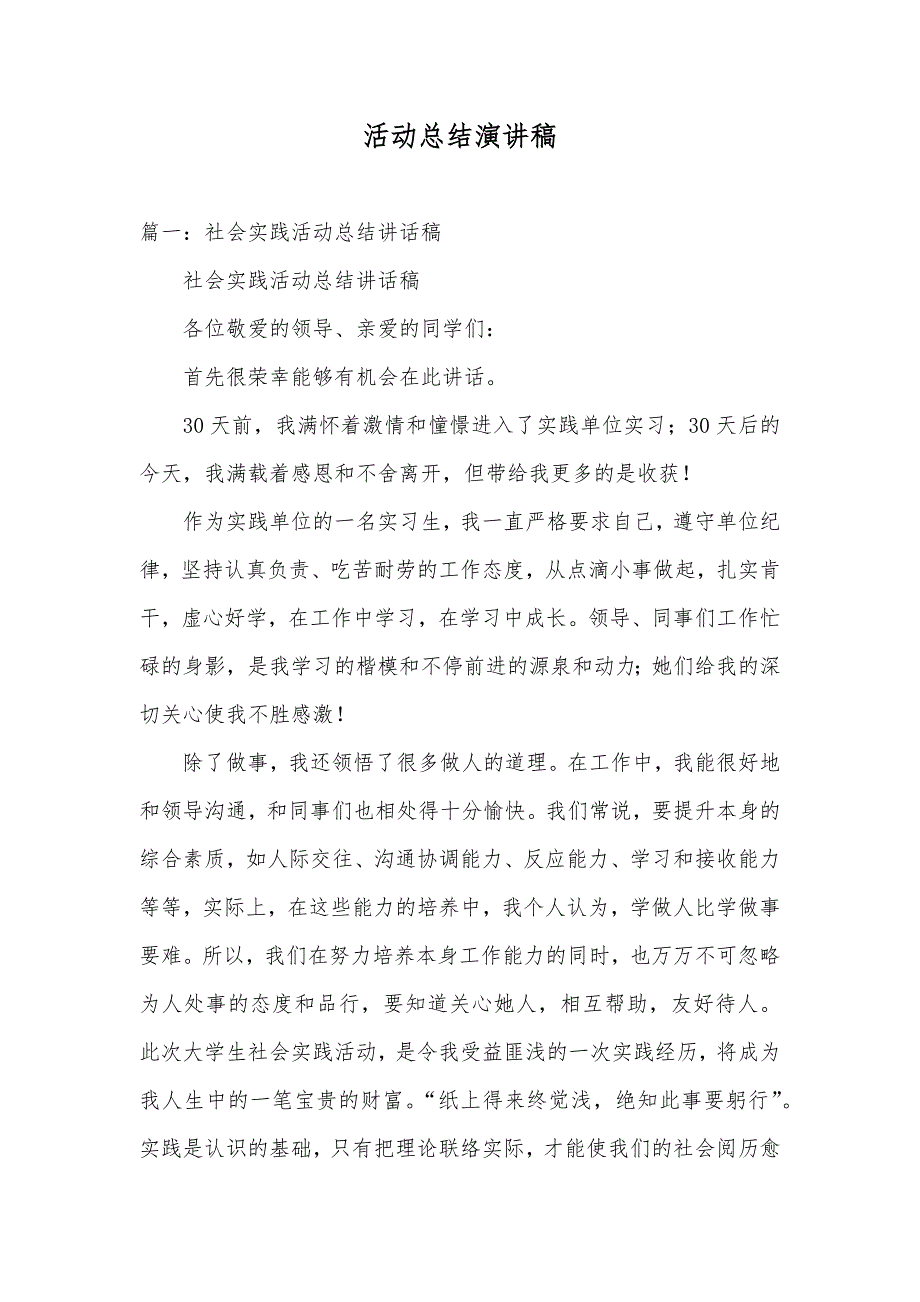 活动总结演讲稿
篇一：社会实践活动总结讲话稿
社会实践活动总结讲话稿
各位敬爱的领导、亲爱的同学们：
首先很荣幸能够有机会在此讲话。
30 天前，我满怀着激情和憧憬进入了实践单位实习；30 天后的
今天，我满载着感恩和不舍离开，但带给我更多的是收获！
作为实践单位的一名实习生，我一直严格要求自己，遵守单位纪
律，坚持认真负责、吃苦耐劳的工作态度，从点滴小事做起，扎实肯
干，虚心好学，在工作中学习，在学习中成长。领导、同事们工作忙
碌的身影，是我学习的楷模和不停前进的源泉和动力；她们给我的深
切关心使我不胜感激！
除了做事，我还领悟了很多做人的道理。在工作中，我能很好地
和领导沟通，和同事们也相处得十分愉快。我们常说，要提升本身的
综合素质，如人际交往、沟通协调能力、反应能力、学习和接收能力
等等，实际上，在这些能力的培养中，我个人认为，学做人比学做事
要难。所以，我们在努力培养本身工作能力的同时，也万万不可忽略
为人处事的态度和品行，要知道关心她人，相互帮助，友好待人。
此次大学生社会实践活动，是令我受益匪浅的一次实践经历，将成为
我人生中的一笔宝贵的财富。“纸上得来终觉浅，绝知此事要躬行”。
实践是认识的基础，只有把理论联络实际，才能使我们的社会阅历愈